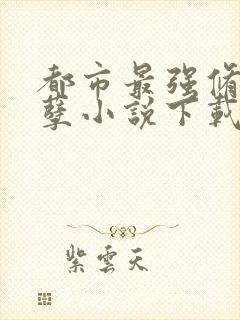 都市最强脩
孽小說下載
紫雲天